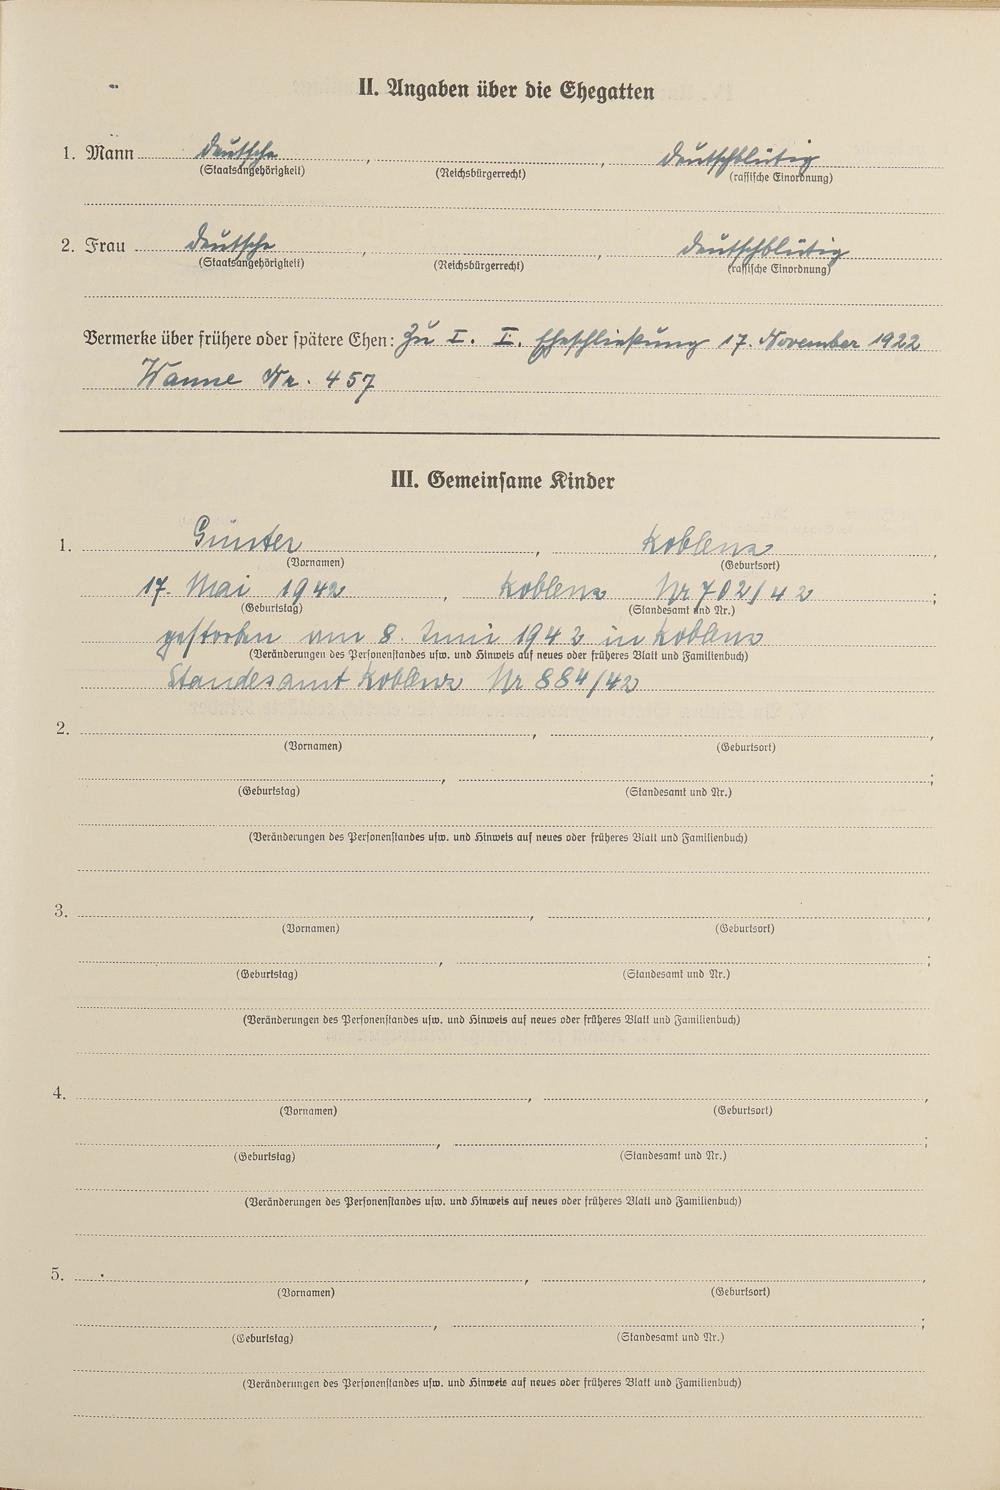 II. Angaben über die Ehegatten
1. Mann deutsche, , deutschblütig
(Staatsangehörigkeit) (Reichsbürgerrecht) (rassische Einordnung)
2. Frau deutsche, , deutschblütig
(Staatsangehörigkeit) (Reichsbürgerrecht) (rassische Einordnung)
Vermerke über frühere oder spätere Ehen: Zu I. I. Eheschließung 17. November 1922
Wanne Nr. 457
III. Gemeinsame Kinder
1. Günter, Koblenz,
(Vornamen) (Geburtsort)
17. Mai 1942, Koblenz Nr 702/42;
(Geburtstag) (Standesamt und Nr.)
gestorben am 8. Juni 1942 in Koblenz
(Veränderungen des Personenstandes usw. und Hinweis auf neues oder früheres Blatt und Familienbuch)
Standesamt Koblenz Nr 884/42
2. , ,
(Vornamen) (Geburtsort)
, ;
(Geburtstag) (Standesamt und Nr.)
(Veränderungen des Personenstandes usw. und Hinweis auf neues oder früheres Blatt und Familienbuch)
3. , ,
(Vornamen) (Geburtsort)
, ;
(Geburtstag) (Standesamt und Nr.)
(Veränderungen des Personenstandes usw. und Hinweis auf neues oder früheres Blatt und Familienbuch)
4. , ,
(Vornamen) (Geburtsort)
, ;
(Geburtstag) (Standesamt und Nr.)
(Veränderungen des Personenstandes usw. und Hinweis auf neues oder früheres Blatt und Familienbuch)
5. , ,
(Vornamen) (Geburtsort)
, ;
(Geburtstag) (Standesamt und Nr.)
(Veränderungen des Personenstandes usw. und Hinweis auf neues oder früheres Blatt und Familienbuch)